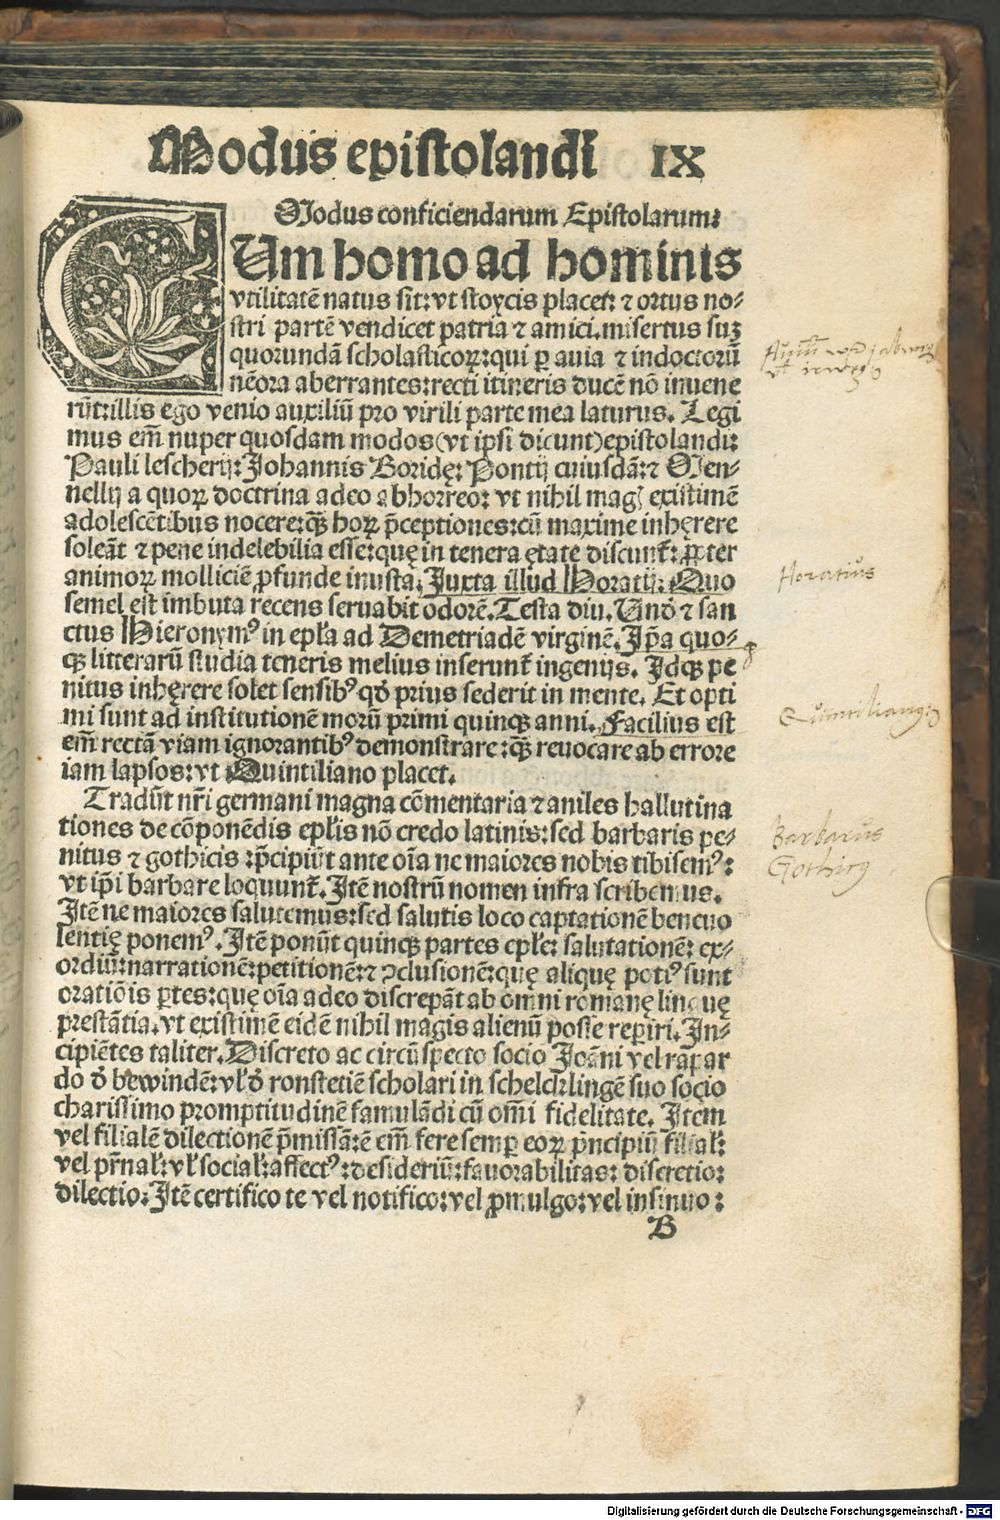 Modus epistolandi IX
Modus conficiendarum Epistolarum:
CUm homo ad hominis
vtilitatē natus sit: vt stoycis placet: ⁊ ortus no-
stri partē vendicet patria ⁊ amici. misertus suꝫ
quorundā scholasticoꝝ: qui ꝑ auia ⁊ indoctorū
nēora aberrantes: recti itineris ducē nō inuene
rūt: illis ego venio auxiliū pro virili parte mea laturus. Legi
mus em̄ nuper quosdam modos (vt ipsi dicunt) epistolandi:
Pauli lescherij: Johannis Boridę: Pontij cuiusdā: ⁊ Men-
nellij a quoꝝ doctrina adeo abhorreo: vt nihil magꝭ existimē
adolescētibus nocere: q̄ꝫ hoꝝ p̄ceptiones: cū maxime inhęrere
soleāt ⁊ pene indelebilia esse: quę in tenera ętate discunt̃: ꝓpter
animoꝝ molliciē ꝓfunde inusta. Juxta illud Horatij: Quo
semel est imbuta recens seruabit odorē. Testa diu. Unō ⁊ san
ctus Hieronymꝰ in epl̃a ad Demetriadē virginē. Jp̄a quo-
qꝫ litterarū studia teneris melius inserunt̃ ingenijs. Jdqꝫ pe
nitus inhęrere solet sensibꝰ qd̄ prius sederit in mente. Et opti
mi sunt ad institutionē morū primi quinqꝫ anni. Facilius est
em̄ rectā viam ignorantibꝰ demonstrare: q̄ꝫ reuocare ab errore
iam lapsos: vt Quintiliano placet.
Tradūt nr̄i germani magna cōmentaria ⁊ aniles hallutina
tiones de cōponēdis epl̃is nō credo latinis: sed barbaris pe-
nitus ⁊ gothicis: p̄cipiūt ante oīa ne maiores nobis tibisemꝰ:
vt ip̄i barbare loquunt̃. Jtē nostrū nomen infra scribemus.
Jtē ne maiores salutemus: sed salutis loco captationē beneuo
lentię ponemꝰ. Jtē ponūt quinqꝫ partes epl̃e: salutationē: ex-
ordiū: narrationē: petitionē: ⁊ ↄclusionē: quę aliquę potiꝰ sunt
oratiōis ꝑtes: quę oīa adeo discrepāt ab omni romanę linguę
prestātia. vt existimē eidē nihil magis alienū posse reꝑiri. Jn-
cipiētes taliter. Discreto ac circūspecto socio Joāni vel rapar
do d̄ bewindē: vl̃ d̄ ronstetiē scholari in schelcklingē suo socio
charissimo promptitudinē famulādi cū om̄i fidelitate. Jtem
vel filialē dilectionē p̄missā: ē em̄ fere semꝑ eoꝝ p̄ncipiū filial̃:
vel pr̄nal̃: vl̃ social̃: affectꝰ: desideriū: fauorabilitas: discretio:
dilectio: Jtē certifico te vel notifico: vel ꝓmulgo: vel insinuo:
B
Horatius
Quintilianus
Barbarus
Gothicus
Digitalisierung gefördert durch die Deutsche Forschungsgemeinschaft - DFG